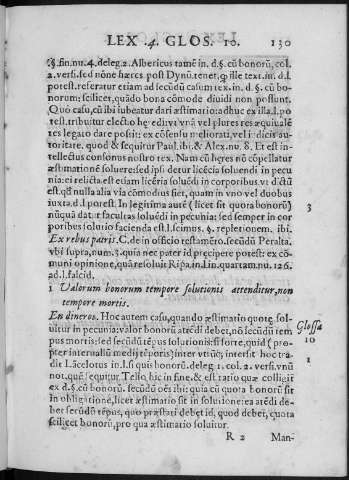 LEX .4. GLOS. 10. 130
§. fin. nu. 4. deleg. 2. Albericus tamē in. d. §. cū bonorū, col.
2. versi. sed nōne hæres post Dynū. tenet, ꝙ ille text. in. d. l.
potest. referatur etiam ad secūdū casum tex. in. d. §. cū bo-
norum: scilicet, quādo bona cōmode diuidi non possunt.
Quo casu, cū ibi iubetur dari æstimatio: adhuc ex illa. l. po
test. tribuitur electio hęredi vt vnā vel plures res æquiualē
tes legato dare possit: ex cōsensu meliorati, vel iudicis au-
toritate. quod & sequitur Paul. ibi. & Alex. nu. 8. Et est in-
tellectus consonus nostro tex. Nam cū hęres nō cōpellatur
æstimationē soluere: sed ipsi detur licēcia soluendi in pecu
nia: ei relicta est etiam licēria soluēdi in corporibus vt dictū
est. qđ nulla alia via cōmodius fiet, quam in vno vel duobus
iuxta. d. l. potest. In legitima autē (licet sit quota bonorū)
nūquā datur facultas soluēdi in pecunia: sed semper in cor
poribus solutio facienda est. l. scimus. §. repletionem. ibi.
Ex rebus patris. C. de in officio testamēto. secūdū Peralta.
vbi supra, num. 3. quia nec pater id pręcipere potest: ex cō-
muni opinione, quā resoluit Ripa. in. l. in quartam. nu. 126.
ad. l. falcid.
3
1 Valorum bonorum tempore solutionis attenditur, non
tempore mortis.
En dineros. Hoc autem casu, quando æstimatio quotę sol-
uitur in pecunia: valor bonorū atēdi debet, nō secūdū tem
pus mortis: sed secūdū tēpus solutionis: si forte, quid (pro-
pter interuallū medij tēporis) inter vtrūq; intersit hoc tra-
dit Lācelotus in. l. si quis bonorū. deleg. 1. col. 2. versi. vnū
not. quē sequitur Tello, hic in fine. & est ratio quæ colligit
ex d. §. cū bonorū. secūdū oēs ibi: quia cū quota bonorū sit
in obligatione, licet æstimatio sit in solutione: ea atēdi de-
bet secūdū tēpus, quo præstari debet id, quod debet, quota
scilicet bonorū, pro qua æstimatio soluitur.
Glossa
10
1
R 2 Man-